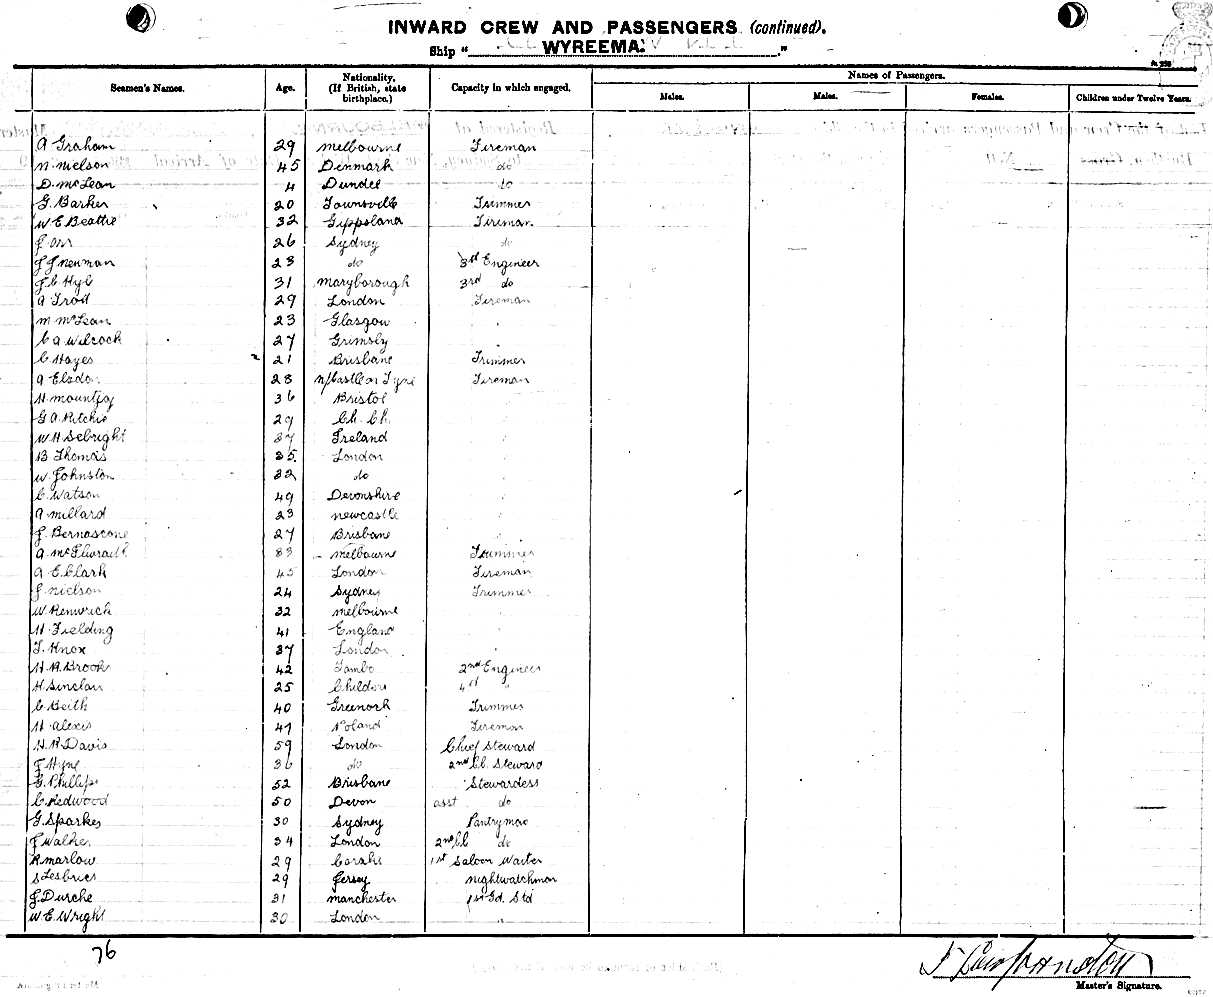 INWARD CREW AND PASSENGERS (continued).
Ship "WYREEMA."
Seamen's Names. Age. Nationality. (If British, state birthplace.) Capacity in which engaged. Names of Passengers.
Males. Males. Females. Children under Twelve Years.
A Graham 29 Melbourne Fireman
N. Nielson 45 Denmark do
D. McLean 4 Dundee do
G. Barker 20 Townsville Trimmer
W E Beattie 32 Gippsland Fireman
J Orr 26 Sydney do
J J Newman 23 do 3rd Engineer
J C Hyb 31 Maryborough 3rd do
A Troil 29 London Fireman
M McLean 23 Glasgow
C A Wilcock 27 Grimsby
C Hayes 21 Brisbane Trimmer
A Elsdon 28 N/Castle on Tyne Fireman
H Mountjoy 36 Bristol
G A Ritchie 29 Ch. Ch.
W H Sebright 37 Ireland
B Thomas 35 London
W Johnston 32 do
C Watson 49 Devonshire
A Millard 23 Newcastle
J. Bernascone 27 Brisbane
A McIlwraith 33 Melbourne Trimmer
A E Clark 45 London Fireman
J Nielson 24 Sydney Trimmer
W Renwick 32 Melbourne
H Fielding 41 England
T. Knox 37 London
H. R. Brook 42 Tambo 2nd Engineer
H Sinclair 25 Childers 4th "
C Beith 40 Greenock Trimmer
H Alexis 47 Poland Fireman
H. R Davis 59 London Chief Steward
J Hyne 36 do 2nd Cl. Steward
G. Phillips 52 Brisbane Stewardess
C. Redwood 50 Devon asst do
G. Sparkes 30 Sydney Pantryman
J Walker 34 London 2nd Cl do
R Marlow 29 1st Saloon Waiter
S 29 Jersey Nightwatchman
J. Durche 31 Manchester 1st Gd. Std
W E. Wright 30 London "
76
Master's Signature.